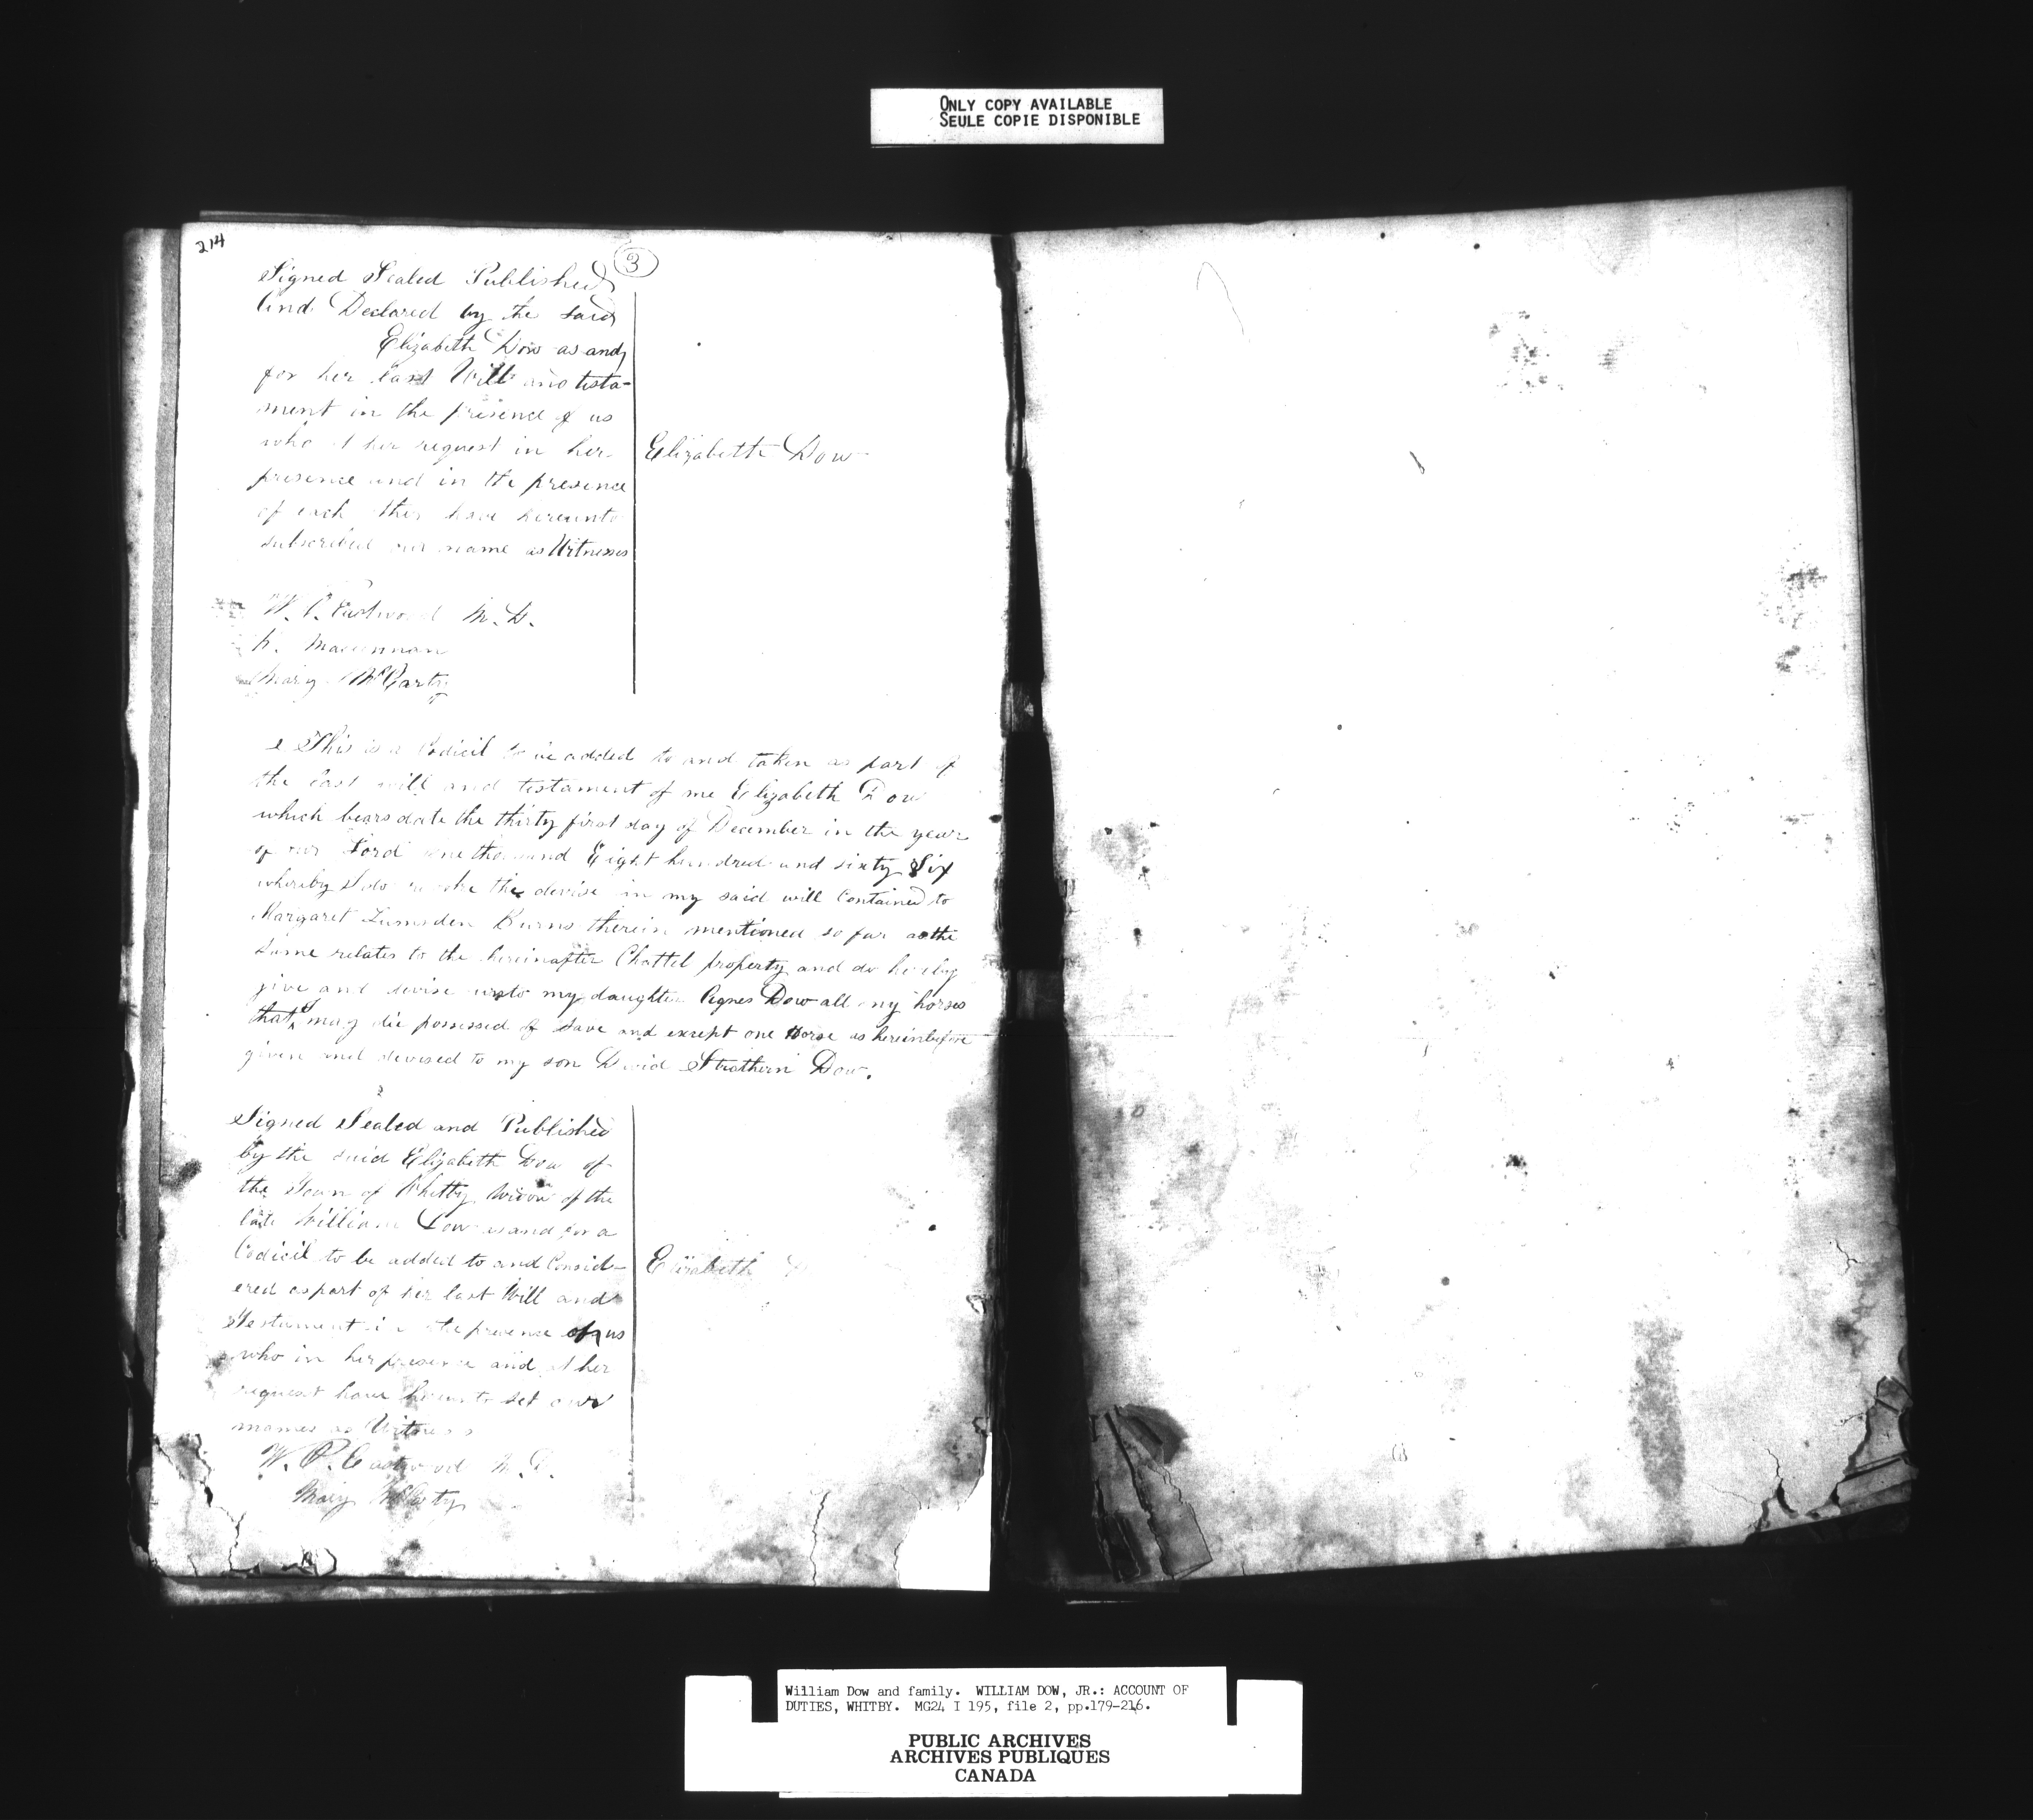 ONLY COPY AVAILABLE
SEULE COPIE DISPONIBLE
214
3
Signed Sealed Published
And Declared by the said
Elizabeth Dow as and
for her last Will and testa-
ment in the presence of us
who at her request in her
presence and in the presence
of each other have hereunto
subscribed our name as Witnesses
Elizabeth Dow
W. P. Eastwood M. D.
Maclennan
Mary McCarty
This is a Codicil to be added to and taken as part of
the last will and testament of me Elizabeth Dow
which bears date the thirty first day of December in the year
of our Lord one thousand Eight hundred and sixty Six
whereby I do revoke the devise in my said will Contained to
Margaret Lumsden Burns therein mentioned so far as the
same relates to the hereinafter Chattel property and do hereby
give and devise unto my daughter Agnes Dow all my horses
that I may die possessed of save and except one Horse as hereinbefore
given and devised to my son David Strathern Dow.
Signed Sealed and Published
by the said Elizabeth Dow of
the Town of Whitby Widow of the
late William Dow as and for a
Codicil to be added to and Consid-
ered as part of her last Will and
Testament in the presence of us
who in her presence and at her
request have hereunto set our
names as Witness
Elizabeth
W. P. Eastwood M. D.
Mary McCarty
William Dow and family. WILLIAM DOW, JR.: ACCOUNT OF
DUTIES, WHITBY. MG24 I 195, file 2, pp.179-216.
PUBLIC ARCHIVES
ARCHIVES PUBLIQUES
CANADA